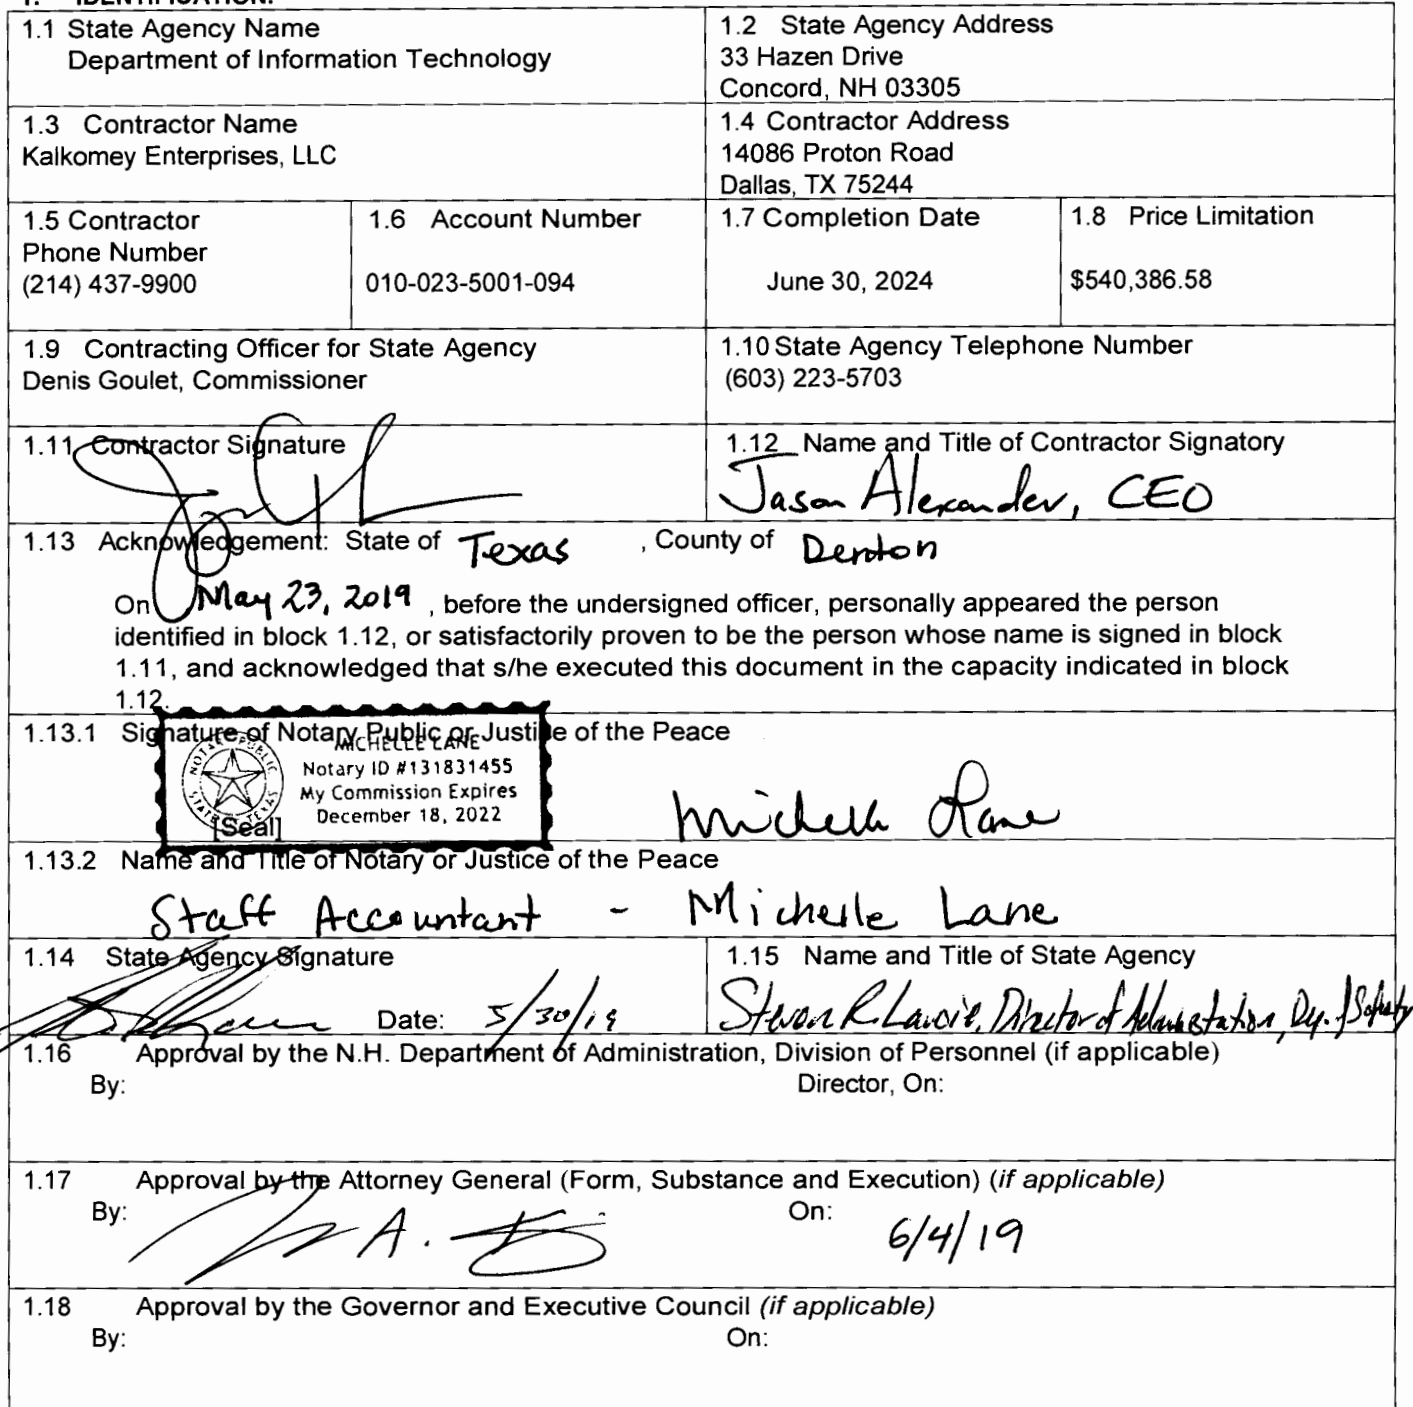 1. IDENTIFICATION.
1.1 State Agency Name
Department of Information Technology
1.2 State Agency Address
33 Hazen Drive
Concord, NH 03305
1.3 Contractor Name
Kalkomey Enterprises, LLC
1.4 Contractor Address
14086 Proton Road
Dallas, TX 75244
1.5 Contractor
Phone Number
(214) 437-9900
1.6 Account Number
010-023-5001-094
1.7 Completion Date
June 30, 2024
1.8 Price Limitation
$540,386.58
1.9 Contracting Officer for State Agency
Denis Goulet, Commissioner
1.10 State Agency Telephone Number
(603) 223-5703
1.11 Contractor Signature
1.12 Name and Title of Contractor Signatory
Jason Alexander, CEO
1.13 Acknowledgement: State of Texas , County of Denton
On May 23, 2019 , before the undersigned officer, personally appeared the person
identified in block 1.12, or satisfactorily proven to be the person whose name is signed in block
1.11, and acknowledged that s/he executed this document in the capacity indicated in block
1.12.
1.13.1 Signature of Notary Public or Justice of the Peace
NOTARY PUBLIC
STATE OF TEXAS
MICHELLE LANE
Notary ID #131831455
My Commission Expires
December 18, 2022
[Seal]
Michelle Lane
1.13.2 Name and Title of Notary or Justice of the Peace
Staff Accountant - Michelle Lane
1.14 State Agency Signature
Date: 5/30/19
1.15 Name and Title of State Agency
Steven R. Lavoie, Director of Administration, Dep. of Safety
1.16 Approval by the N.H. Department of Administration, Division of Personnel (if applicable)
By:
Director, On:
1.17 Approval by the Attorney General (Form, Substance and Execution) (if applicable)
By:
On: 6/4/19
1.18 Approval by the Governor and Executive Council (if applicable)
By:
On: